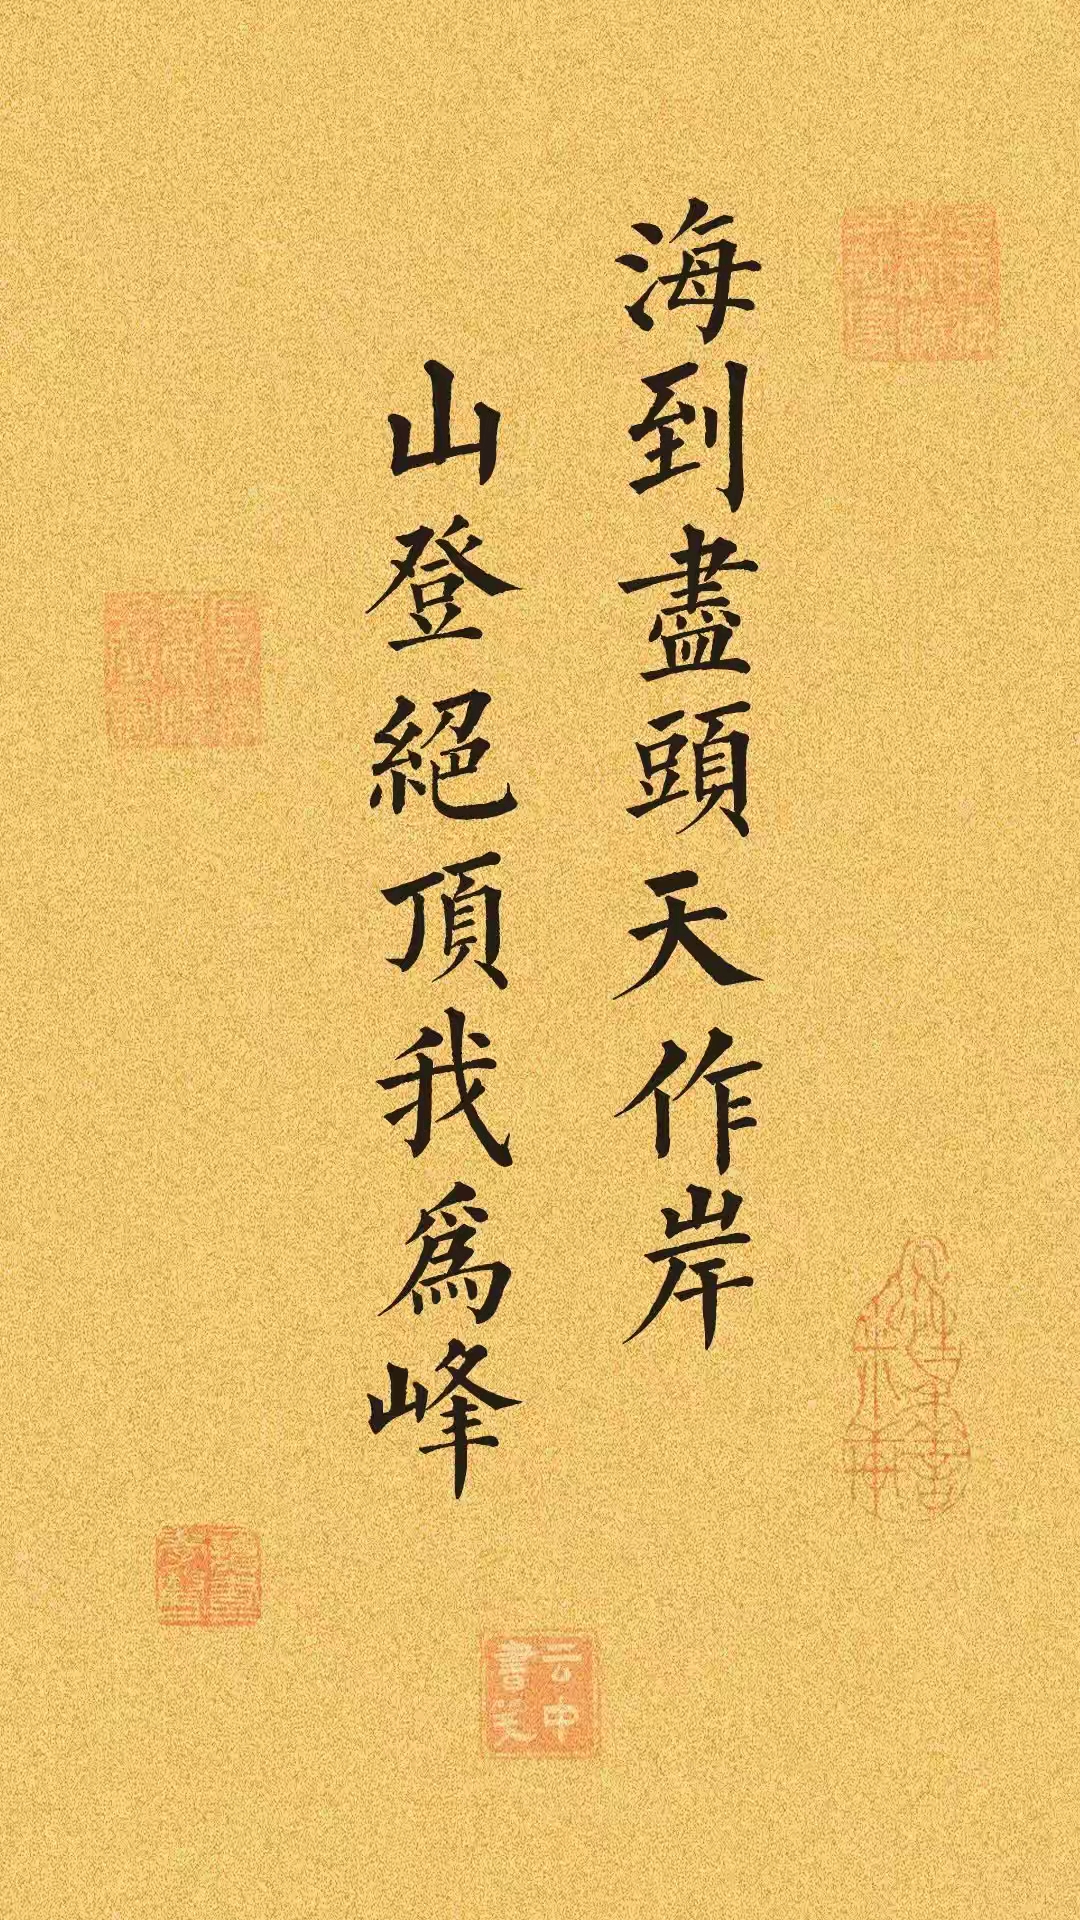 海到盡頭天作岸
山登絕頂我為峰
云中
書笑